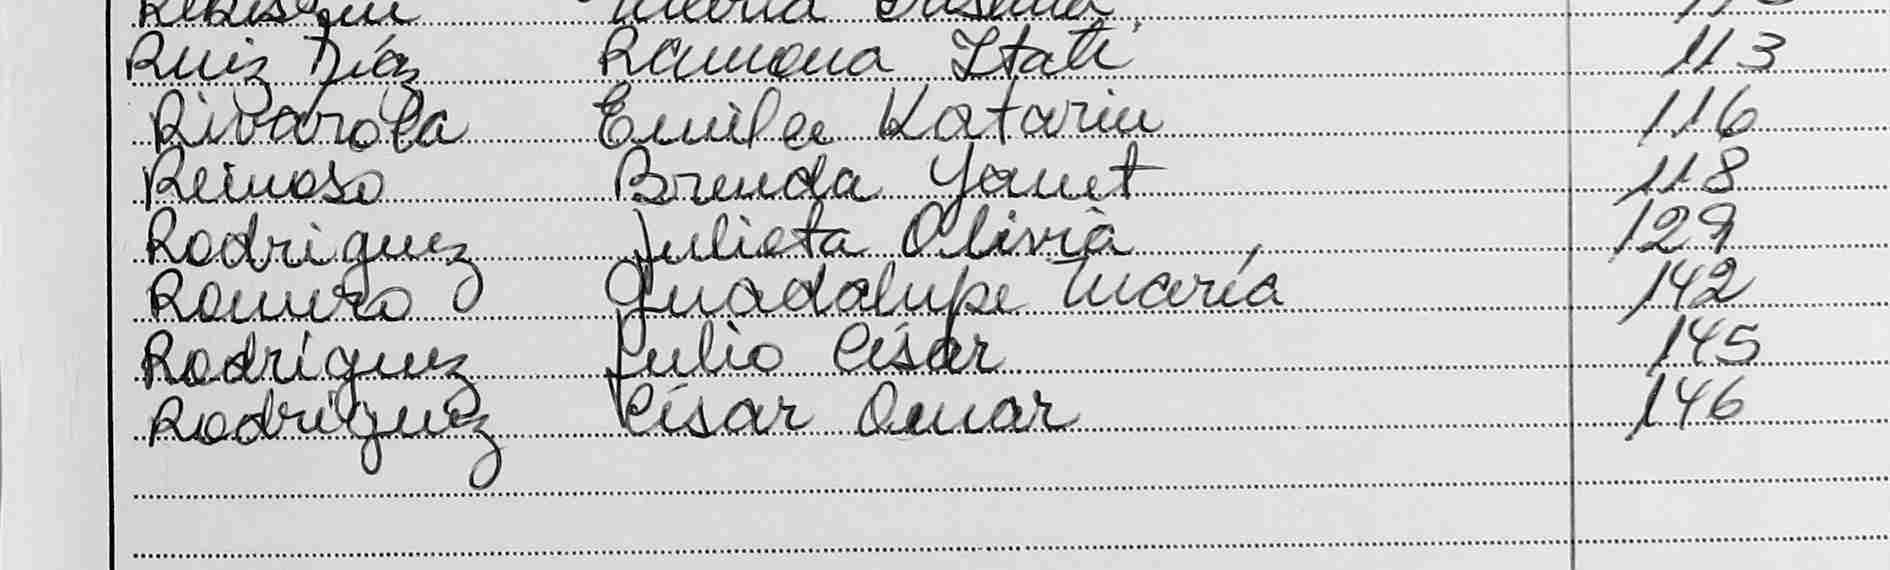 Ruiz Díaz Ramona Itatí 113
Rivarola Emilce Katarin 116
Reinoso Brenda Yanet 118
Rodriguez Julieta Olivia 129
Romero Guadalupe María 142
Rodríguez Julio César 145
Rodríguez César Omar 146